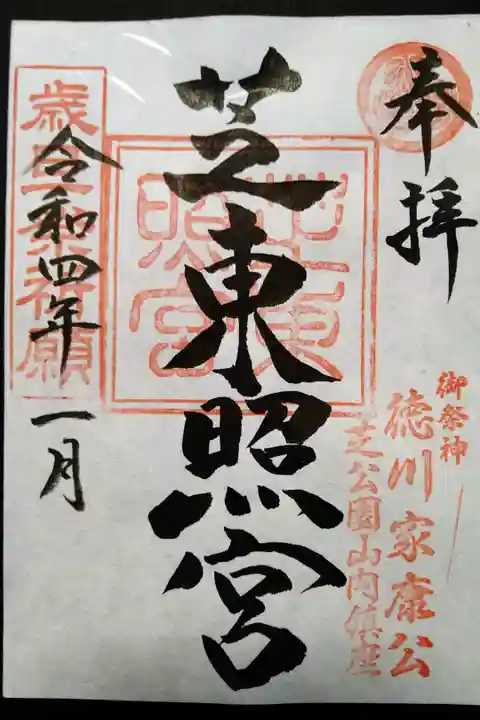 奉拝
御祭神
徳川家康公
芝公園山内鎮座
芝東照宮
芝東照宮
歳旦祭祈願
令和四年一月